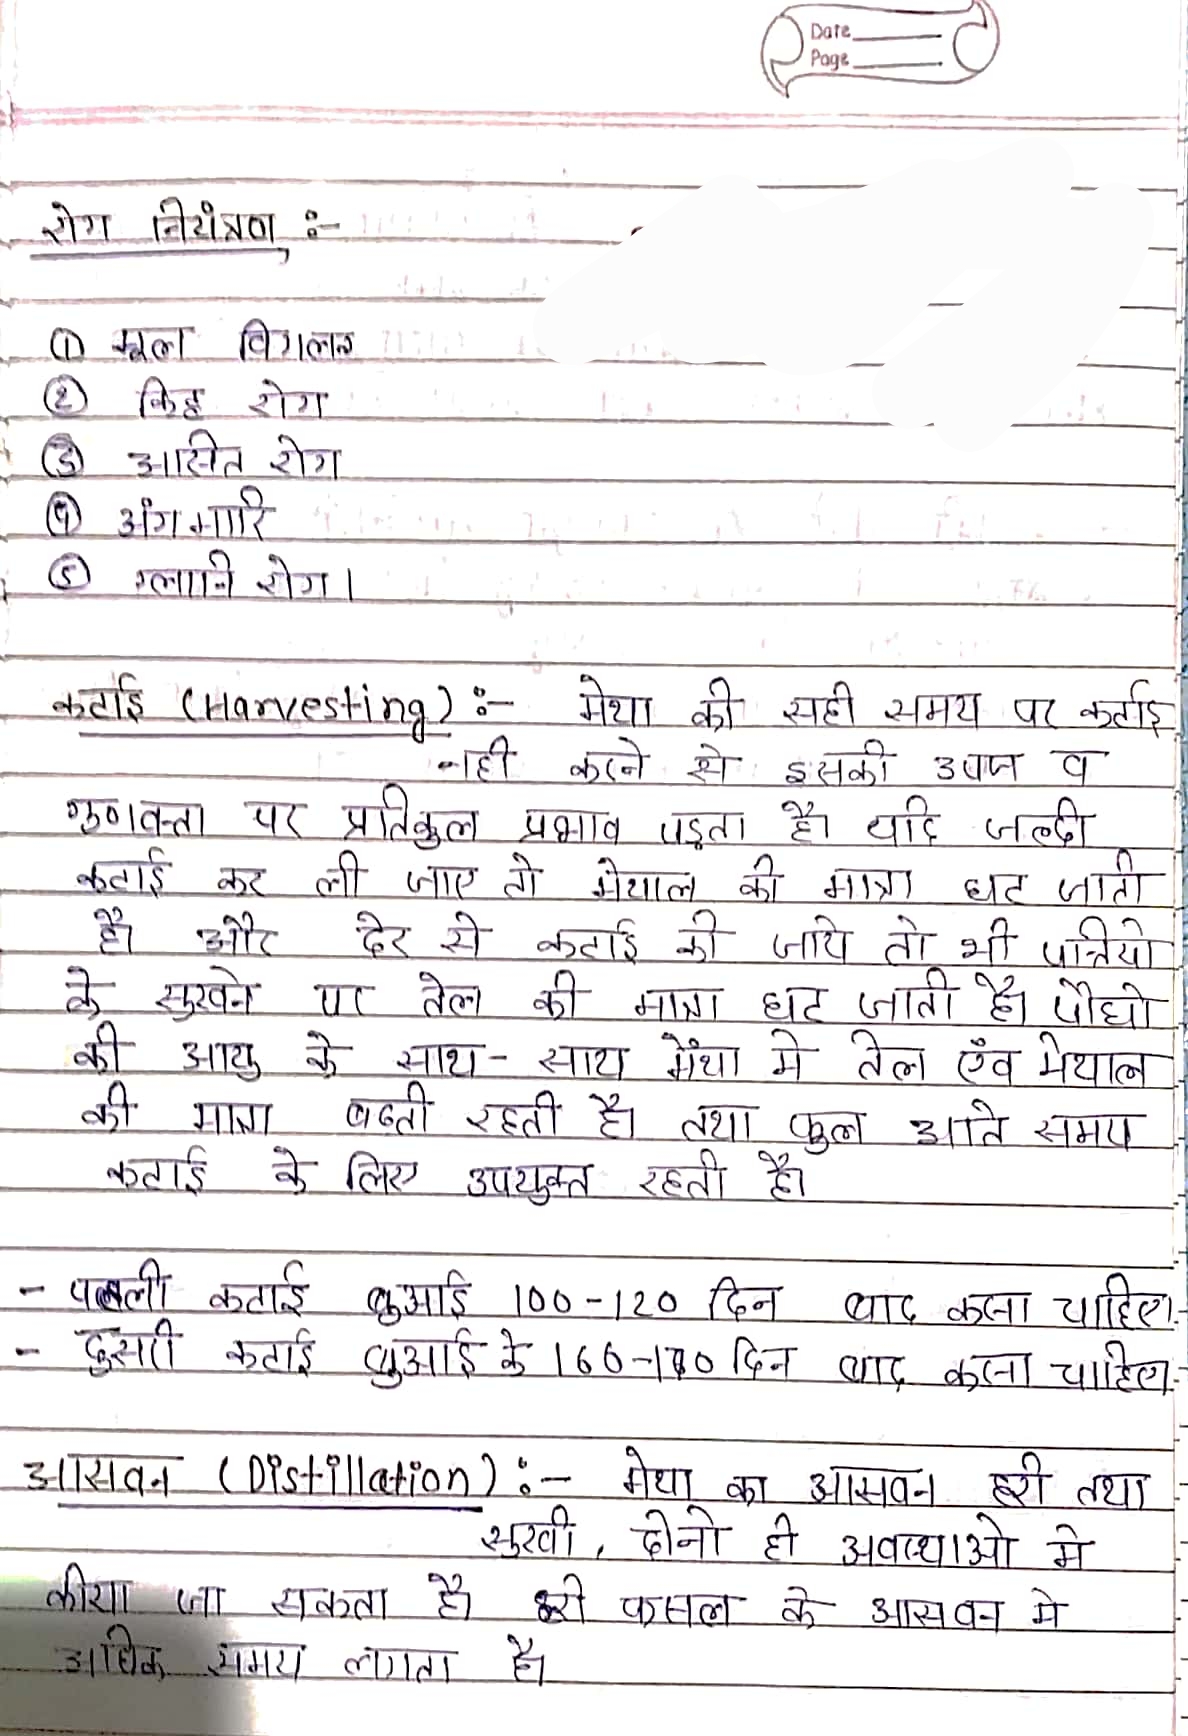 Date
Page
रोग नियंत्रण :-
① मूल विगलन
② किट्ट रोग
③ आसित रोग
④ अंगमारि
⑤ ग्लानि रोग।
कटाई (Harvesting) :- मेथा की सही समय पर कटाई
नही करने से इसकी उपज व
गुणवन्ता पर प्रतिकुल प्रभाव पड़ता है। यदि जल्दी
कटाई कर ली जाए तो मेथाल की मात्रा घट जाती
है। और देर से कटाई की जाये तो भी पत्तियो
के सुखने पर तेल की मात्रा घट जाती है। पौधो
की आयु के साथ - साथ मेंथा मे तेल एँव मेथाल
की मात्रा बढती रहती है। तथा फुल आते समय
कटाई के लिए उपयुक्त रहती है।
- पहली कटाई बुआई 100-120 दिन बाद करना चाहिए।
- दुसरी कटाई बुआई के 160-170 दिन बाद करना चाहिए।
आसवन (Distillation) :- मेथा का आसवन हरी तथा
सुखी, दोनो ही अवस्थाओ मे
कीया जा सकता है। हरी फसल के आसवन मे
अधिक समय लगता है।